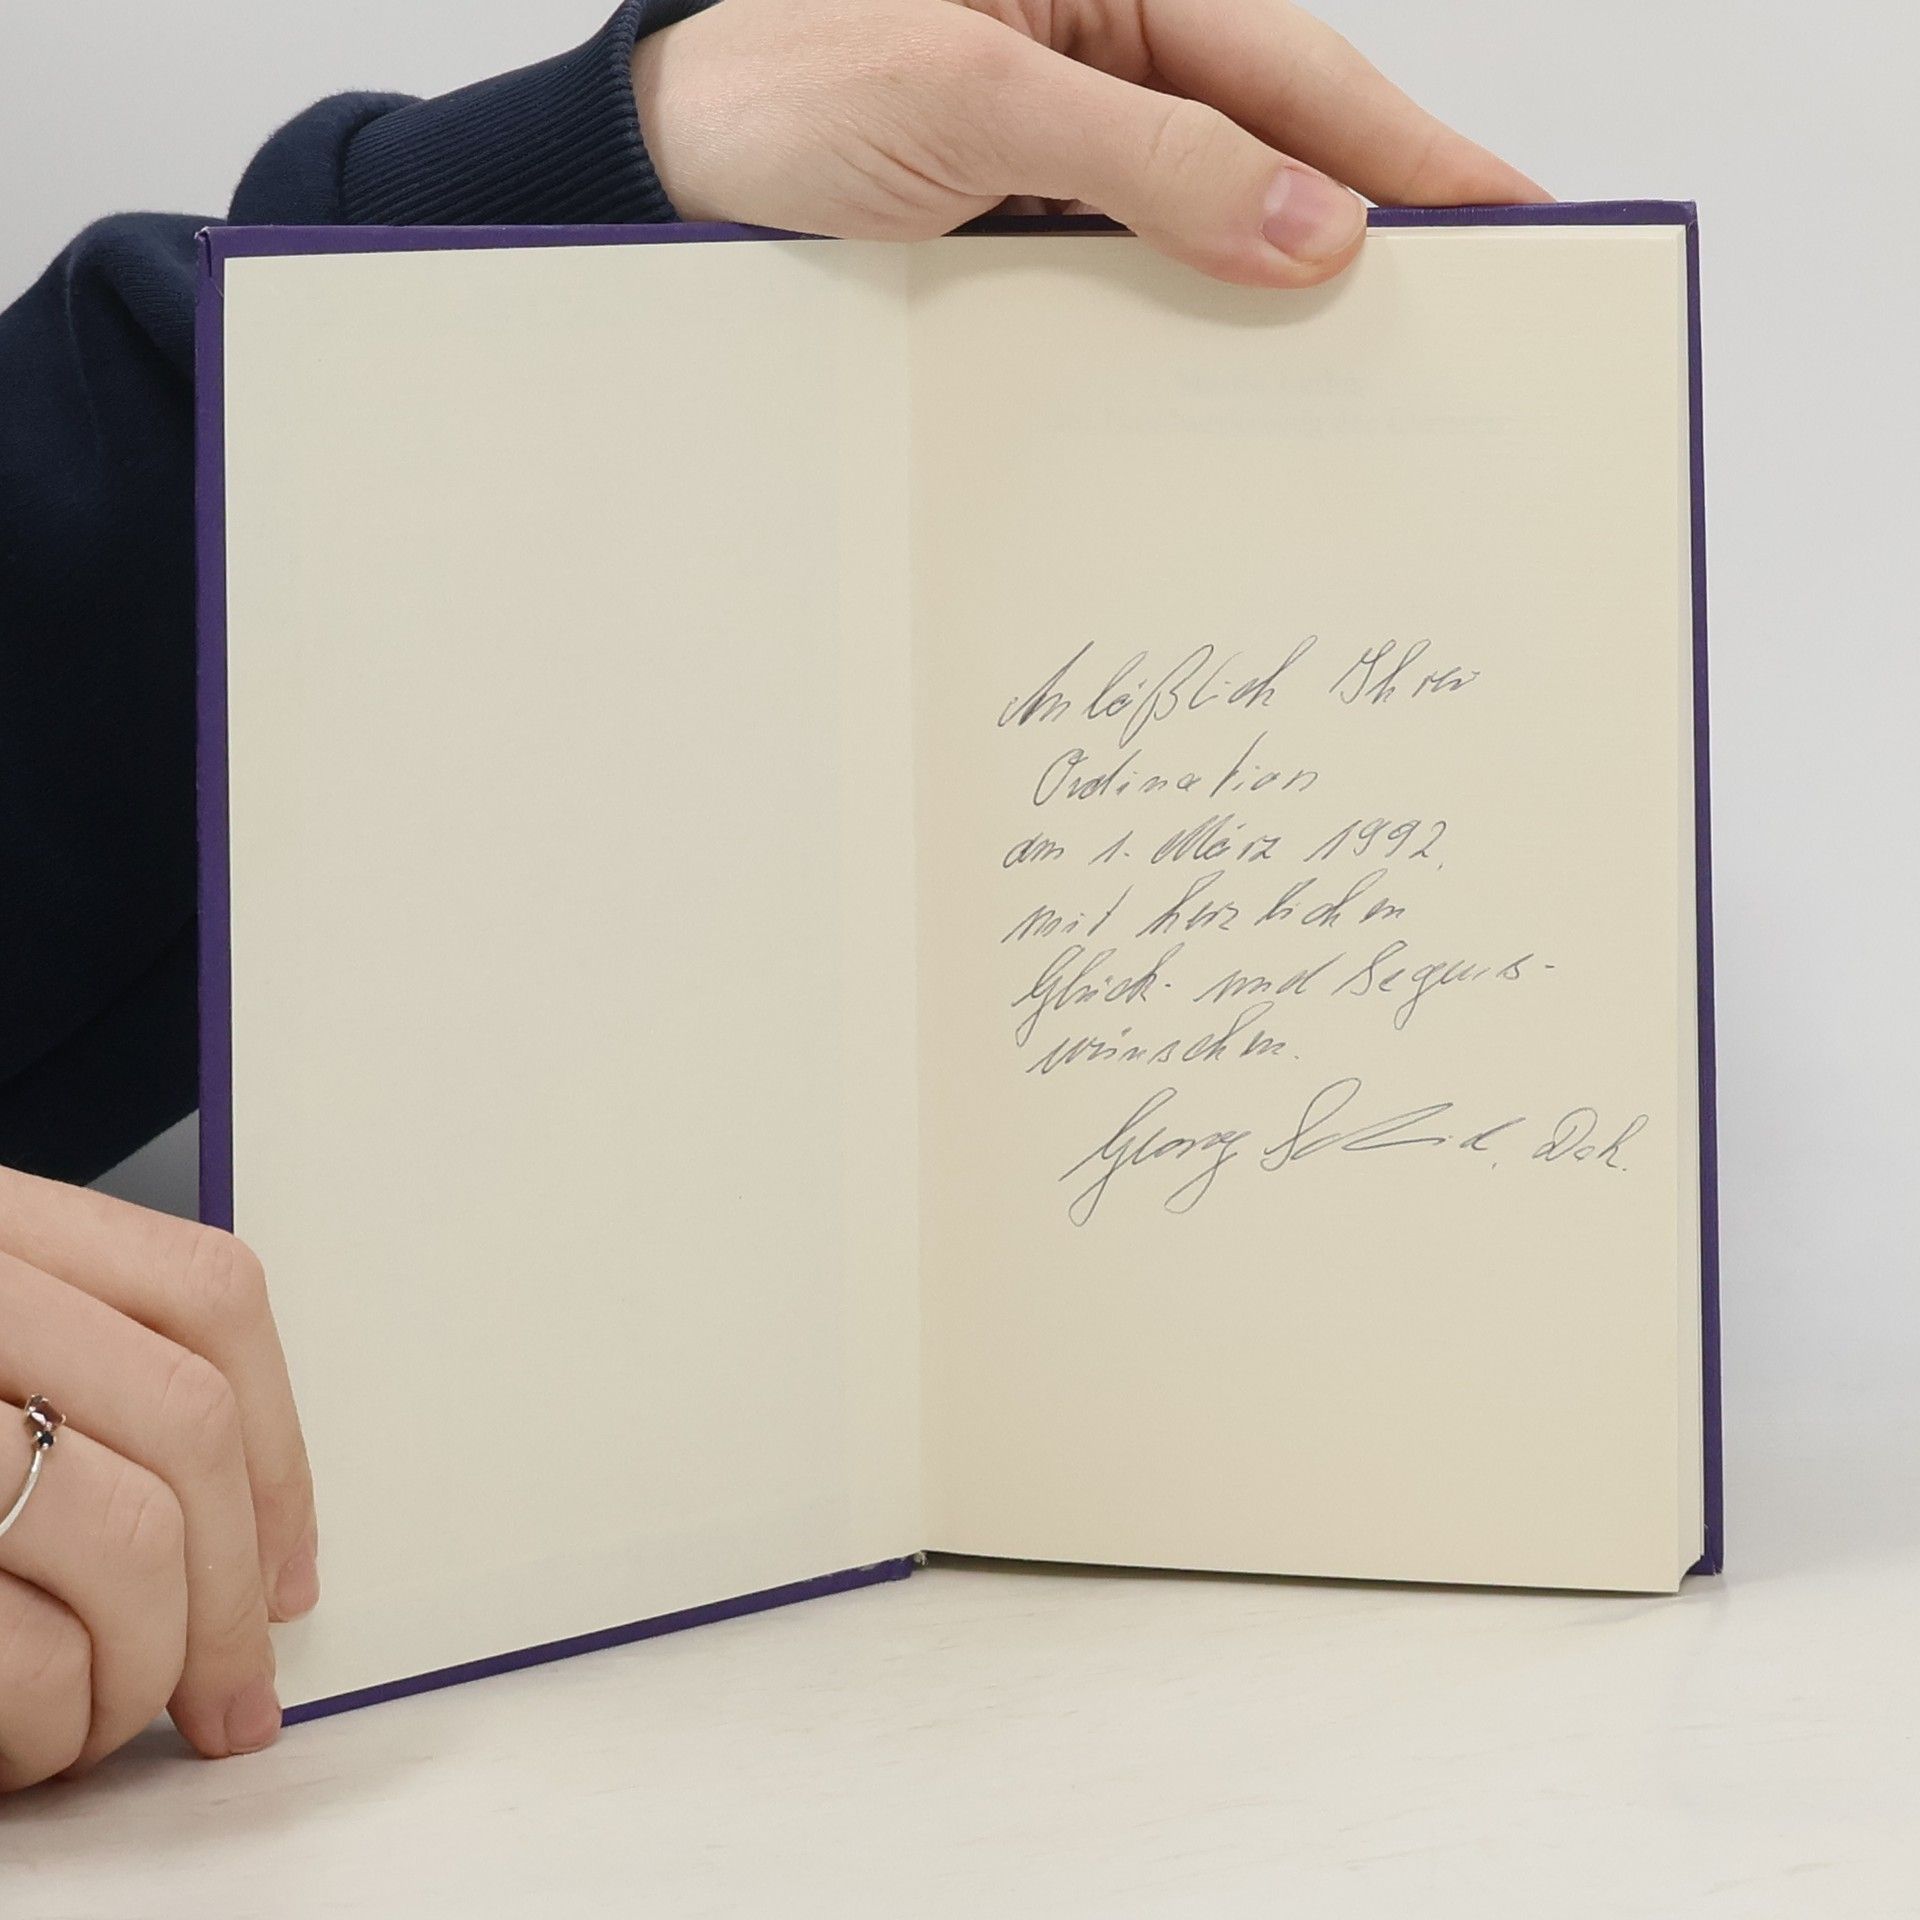 Anläßlich Ihrer
Ordination
am 1. März 1992,
mit herzlichen
Glück- und Segens-
wünschen.
Georg Dek.